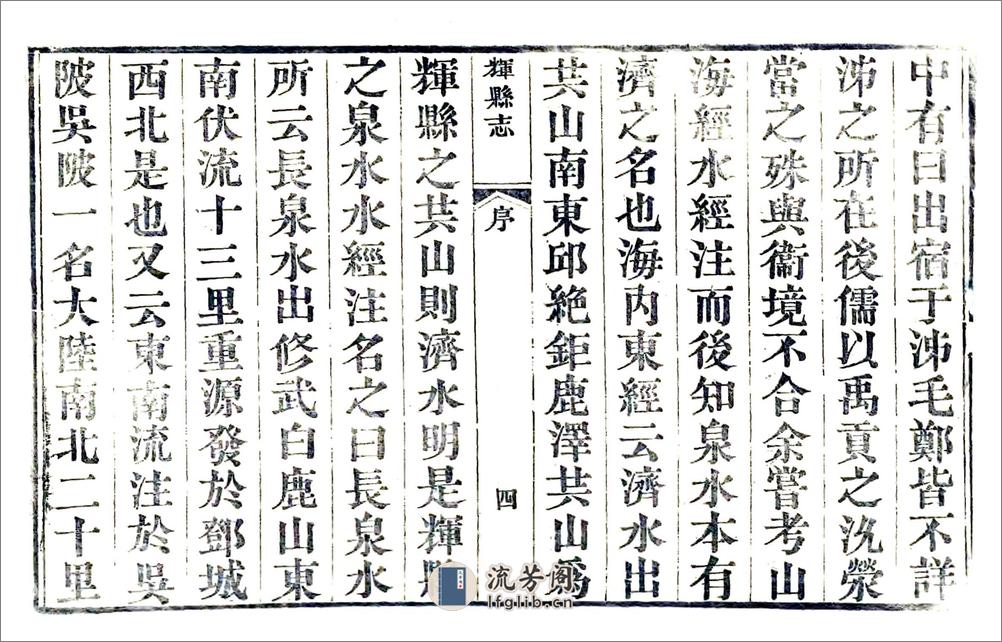 中有曰出宿于泲毛鄭皆不詳
泲之所在後儒以禹貢之沇滎
當之殊與衞境不合余嘗考山
海經水經注而後知泉水本有
濟之名也海内東經云濟水出
共山南東邱絶鉅鹿澤共山爲
輝縣志 序 四
輝縣之共山則濟水明是輝縣
之泉水水經注名之曰長泉水
所云長泉水出修武白鹿山東
南伏流十三里重源發於鄧城
西北是也又云東南流注於吳
陂吳陂一名大陸南北二十里
流芳阁
lfglib.cn